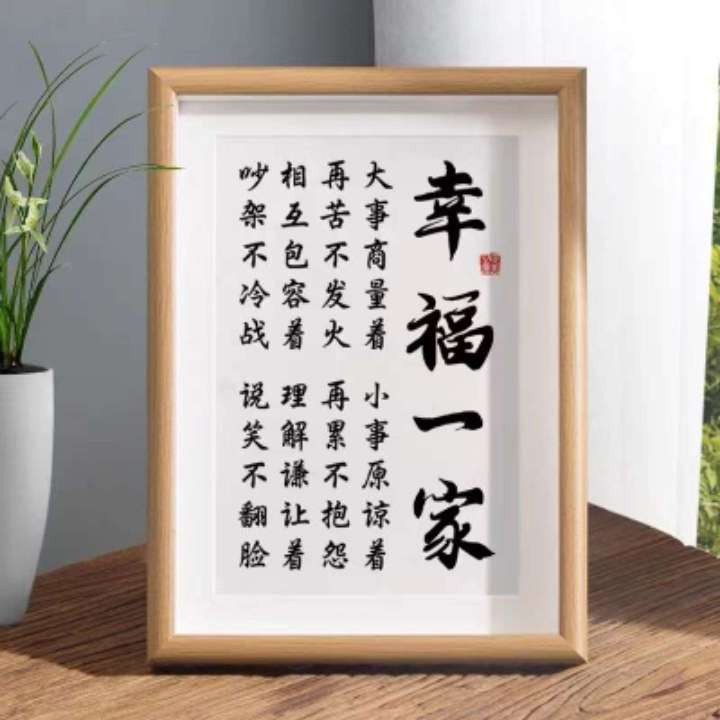 幸福一家
大事商量着 小事原谅着
再苦不发火 再累不抱怨
相互包容着 理解谦让着
吵架不冷战 说笑不翻脸